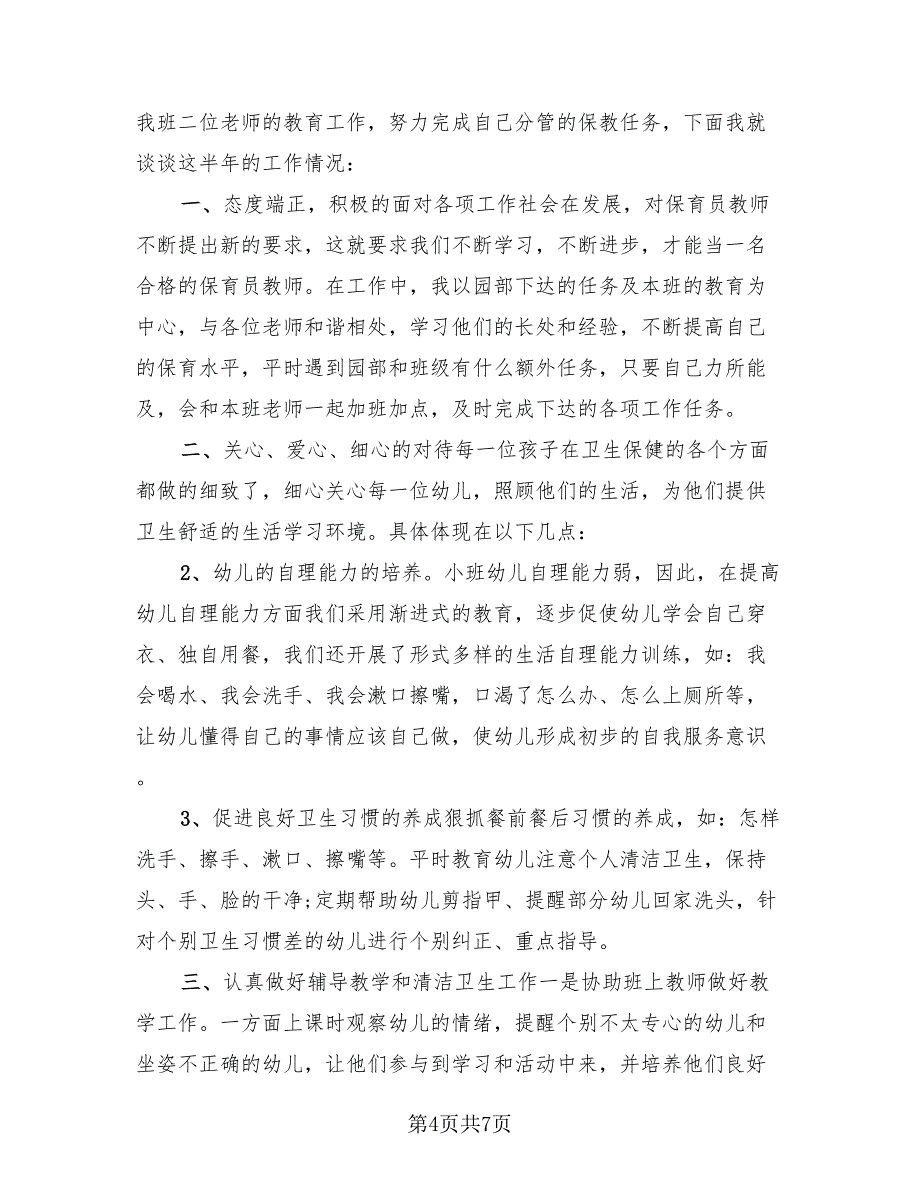 我班二位老师的教育工作，努力完成自己分管的保教任务，下面我就
谈谈这半年的工作情况：
一、态度端正，积极的面对各项工作社会在发展，对保育员教师
不断提出新的要求，这就要求我们不断学习，不断进步，才能当一名
合格的保育员教师。在工作中，我以园部下达的任务及本班的教育为
中心，与各位老师和谐相处，学习他们的长处和经验，不断提高自己
的保育水平，平时遇到园部和班级有什么额外任务，只要自己力所能
及，会和本班老师一起加班加点，及时完成下达的各项工作任务。
二、关心、爱心、细心的对待每一位孩子在卫生保健的各个方面
都做的细致了，细心关心每一位幼儿，照顾他们的生活，为他们提供
卫生舒适的生活学习环境。具体体现在以下几点：
2、幼儿的自理能力的培养。小班幼儿自理能力弱，因此，在提高
幼儿自理能力方面我们采用渐进式的教育，逐步促使幼儿学会自己穿
衣、独自用餐，我们还开展了形式多样的生活自理能力训练，如：我
会喝水、我会洗手、我会漱口擦嘴，口渴了怎么办、怎么上厕所等，
让幼儿懂得自己的事情应该自己做，使幼儿形成初步的自我服务意识
。
3、促进良好卫生习惯的养成狠抓餐前餐后习惯的养成，如：怎样
洗手、擦手、漱口、擦嘴等。平时教育幼儿注意个人清洁卫生，保持
头、手、脸的干净;定期帮助幼儿剪指甲、提醒部分幼儿回家洗头，针
对个别卫生习惯差的幼儿进行个别纠正、重点指导。
三、认真做好辅导教学和清洁卫生工作一是协助班上教师做好教
学工作。一方面上课时观察幼儿的情绪，提醒个别不太专心的幼儿和
坐姿不正确的幼儿，让他们参与到学习和活动中来，并培养他们良好
第4页共7页